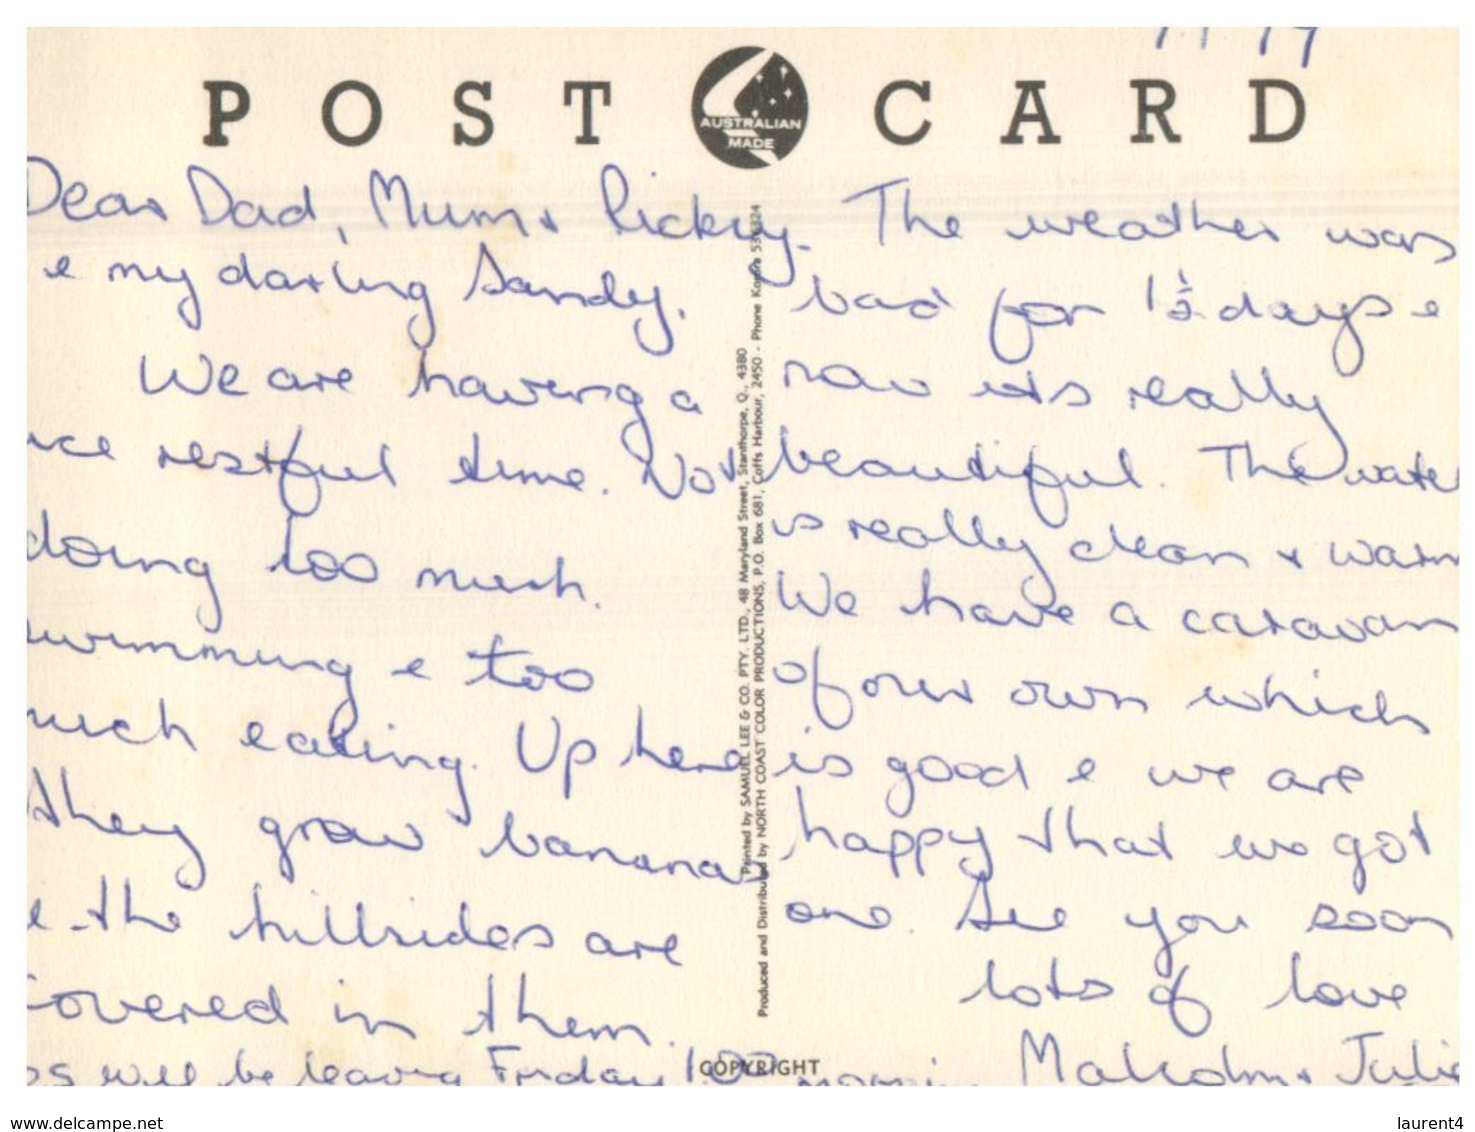 POST CARD
AUSTRALIAN
MADE
Dear Dad, Mum + Rickey.
e my darling Sandy.
We are having a
ice restful time. Not
doing too much.
swimming e too
much eating. Up here
they grow bananas
e the hillsides are
covered in them.
ps will be leaving Friday
The weather was
bad for 1½ days e
now its really
beautiful. The water
is really clean + warm
We have a caravan
of our own which
is good e we are
happy that we got
one. See you soon
lots of love
Malcolm + Julie
Printed by SAMUEL LEE & CO. PTY. LTD., 48 Maryland Street, Stanthorpe, Q., 4380
Produced and Distributed by NORTH COAST COLOR PRODUCTIONS, P.O. Box 681, Coffs Harbour, 2450 - Phone
COPYRIGHT
www.delcampe.net
laurent4